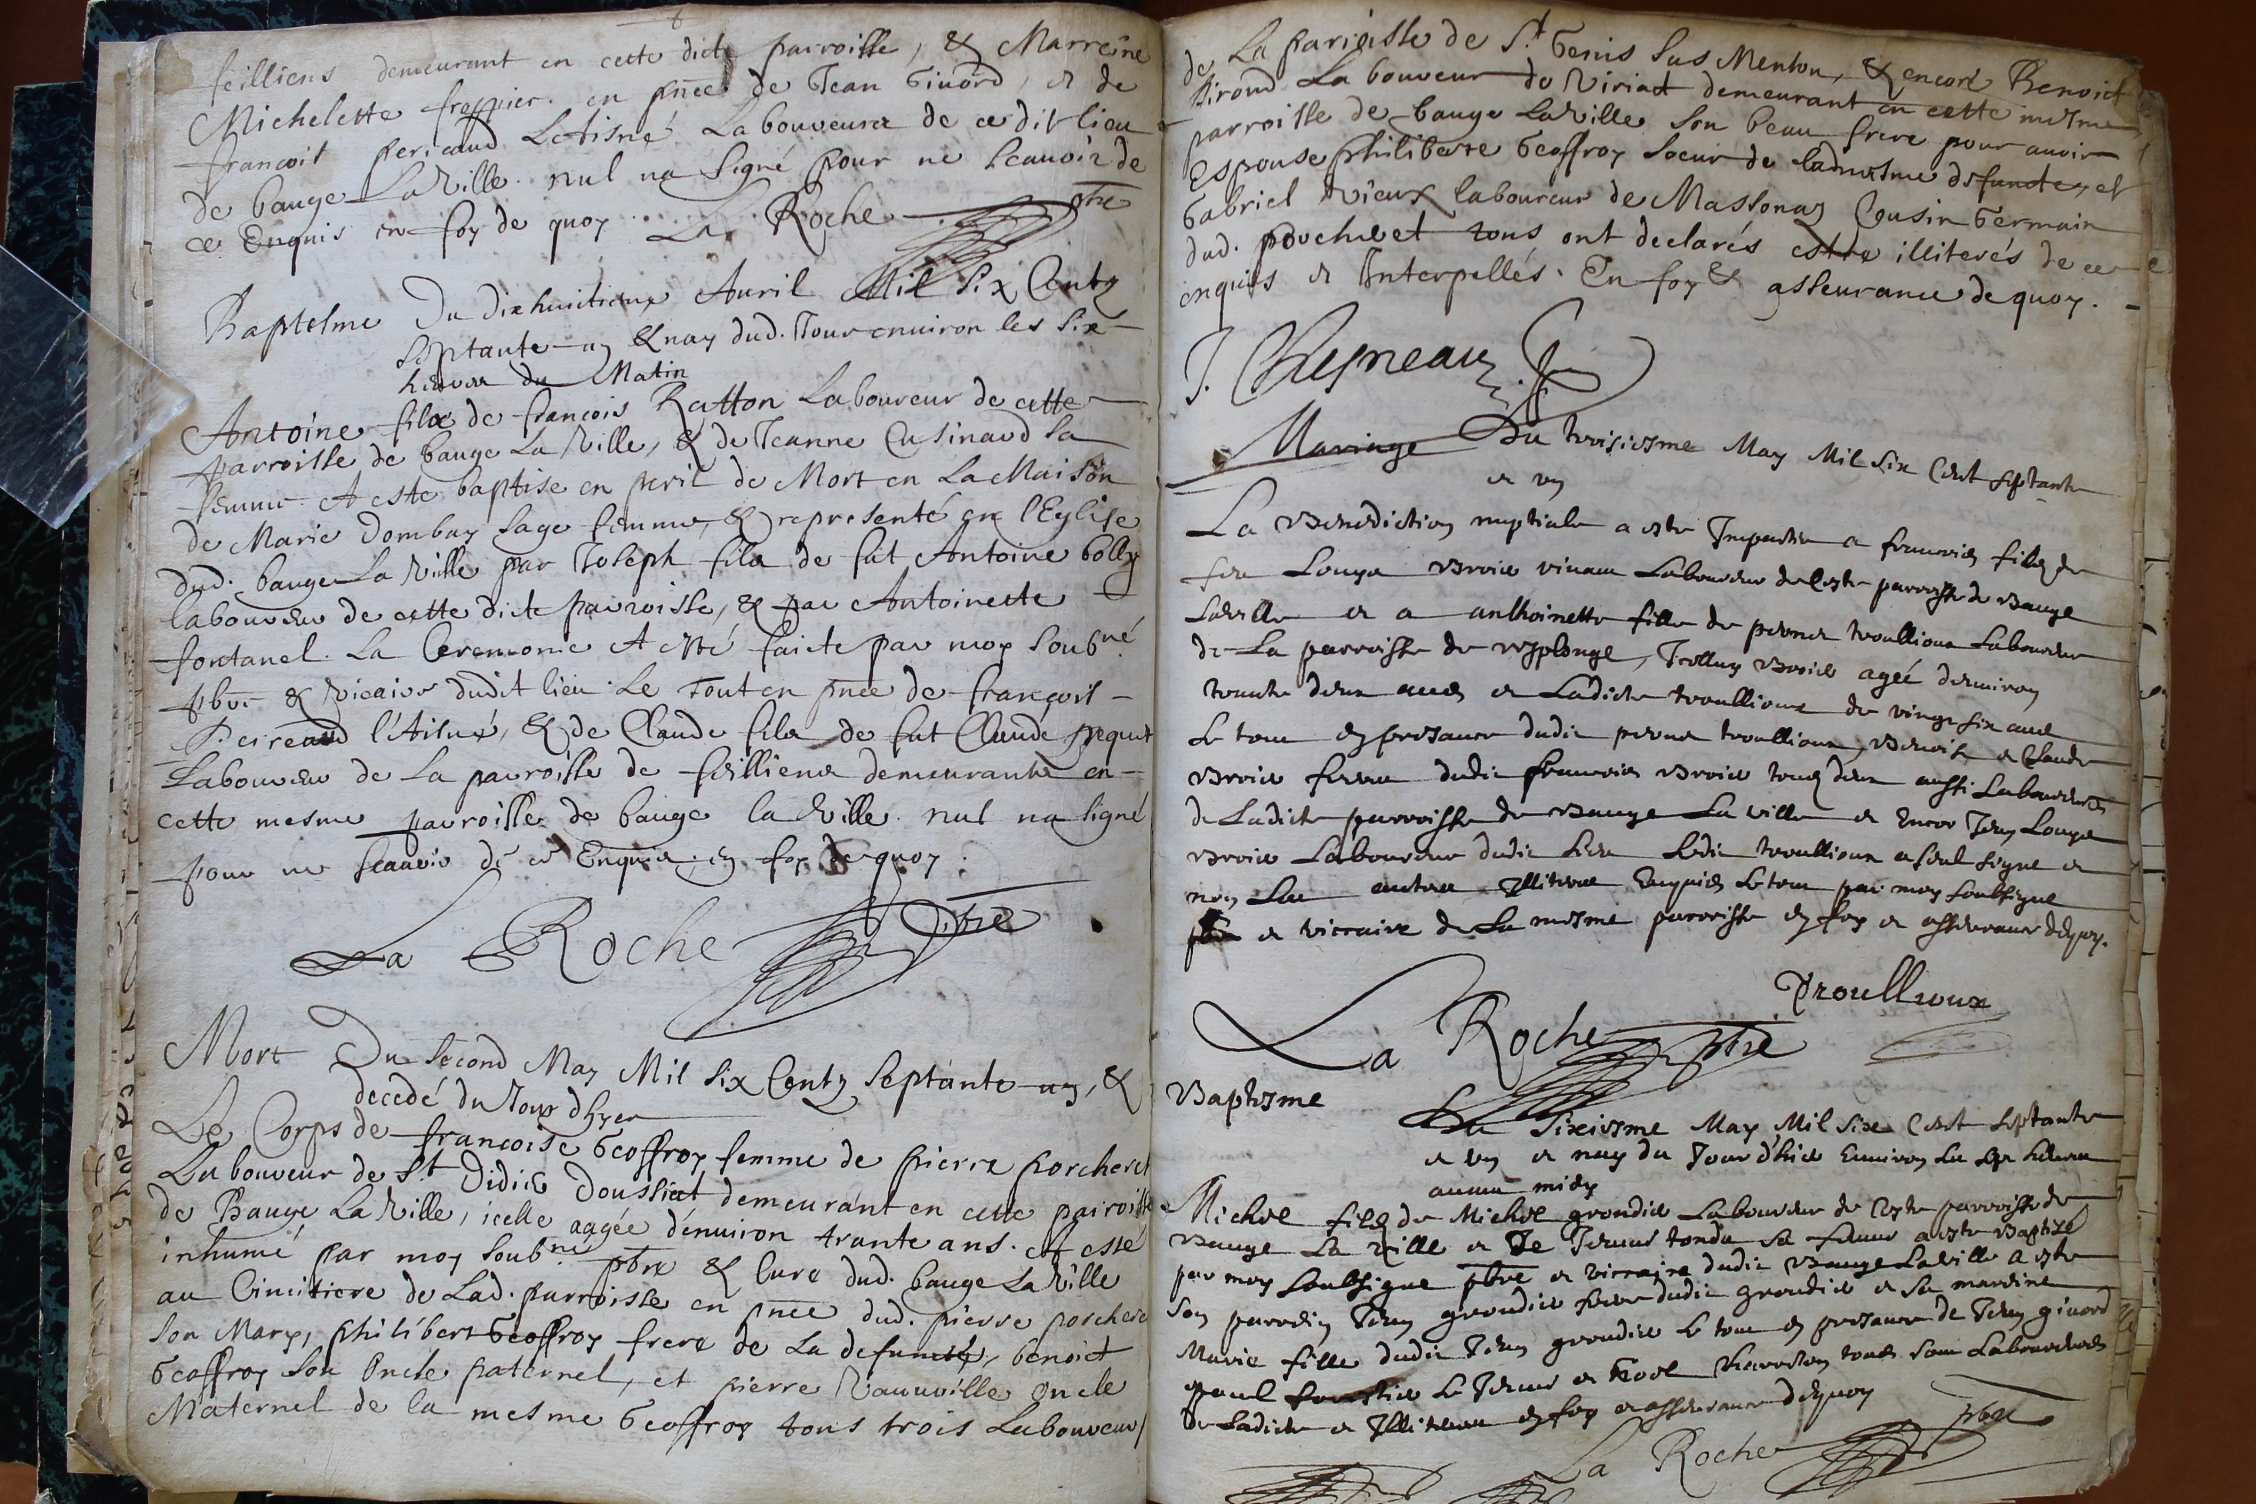 feilliens demeurant en cette dicte parroisse, & Marreine
Michelette freppier. en pnce de Jean Givord, et de
francois pericaud L'Aisné Laboureurs de ce dit lieu
de bauge La Ville. nul na signé pour ne scauoir de
ce Enquis en foy de quoy. La Roche ptre
Baptesme Du dixhuitieme Auril Mil six Centz
septante un & nay dud. Jour enuiron les six
heures du Matin
Antoine fils de francois Ratton Laboureur de cette
parroisse de bauge La Ville, & de Jeanne Cusinard sa
femme A esté baptisé en peril de Mort en La Maison
de Marie Dombay sage femme, & representé en l'Eglise
dud. bauge La Ville par Joseph fils de fut Antoine bolly
laboureur de cette dicte parroisse, & par Antoinette
fontanel. La Ceremonie A esté faicte par moy soubné
pbre & vicaire dudit lieu. Le Tout en pnce de francois
Pericaud l'Aisné, & de Claude fils de fut Claude
Laboureur de La parroisse de feilliens demeurants en
cette mesme parroisse de bauge la Ville. nul na signé
pour ne scauoir de ce Enquis. en foy de quoy.
La Roche ptre
Mort Du second May Mil six Centz septante un, &
decedé du Jour d'hyer
Le Corps de francoise Geoffroy femme de pierre porcheret
Laboureur de St. Didier Doussiat demeurant en cette parroisse
de Bauge La Ville, icelle aagée d'enuiron trante ans. A esté
inhumé par moy soubné ptre & Curé dud. bauge La Ville
au Cimitiere de Lad. parroisse en pnce dud. pierre porcheret
son Mary, philibert Geoffroy frere de La defuncte, benoict
Geoffroy son Oncle paternel, et pierre Vauuille Oncle
Maternel de la mesme Geoffroy tous trois Laboureurs
de La parroisse de St. Genis sus Menton, & encore Benoict
Sirond Laboureur de Viriat demeurant en cette mesme
parroisse de bauge La Ville son beau frere pour auoir
Espousé philiberte Geoffroy soeur de ladmesme defuncte, et
Gabriel Vieux laboureur de Massonay Cousin Germain
dud. porcheret tous ont declarés estre illiterés de ce
enquis et Interpellés. En foy & asseurance de quoy.
J. Chesneau
Mariage Du troisiesme May Mil six Cent septante
et un
La Benediction nuptiale a este Impartie a francois filz de
feu Louys Broid viuant Laboureur de Ceste parroisse de Bauge
Laville et a anthoinette fille de pierre troullioux Laboureur
de La parroisse de Replonge, Icelluy Broid agé denuiron
trante deux ans et Ladicte troullioux de vingt six ans
Le tout en presance dudit pierre troullioux, Benoist et Claude
Broid freres dudit francois Broid tous deux aussi Laboureurs
de Ladicte parroisse de Bauge La ville et Encor Jean Louys
Broid Laboureur dudit lieu Ledit troullioux a seul signe et
non Les autres Illiteres Enquis Le tout par moy soubsigne
pbre et vicaire de La mesme parroisse en foy et asseurance dequoy.
Troullioux
La Roche ptre
Baptesme
Du sixiesme May Mil six Cent septante
et un et nay du Jour d'hier Enuiron Les sept heures
auant midy
Michel filz de Michel grondier Laboureur de Ceste parroisse de
Bauge La Ville et De Jeanne tondu sa femme a este Baptizé
par moy soubsigne ptre et vicaire dudit Bauge Laville A este
son parrein Jean grondier frere dudit grondier et sa mareine
Marie fille dudit Jean grondier Le tout en presance de Jean givord
paul Le Jeune et tous Laboureurs
de Ladicte et Illiteres en foy et asseurance dequoy
La Roche ptre